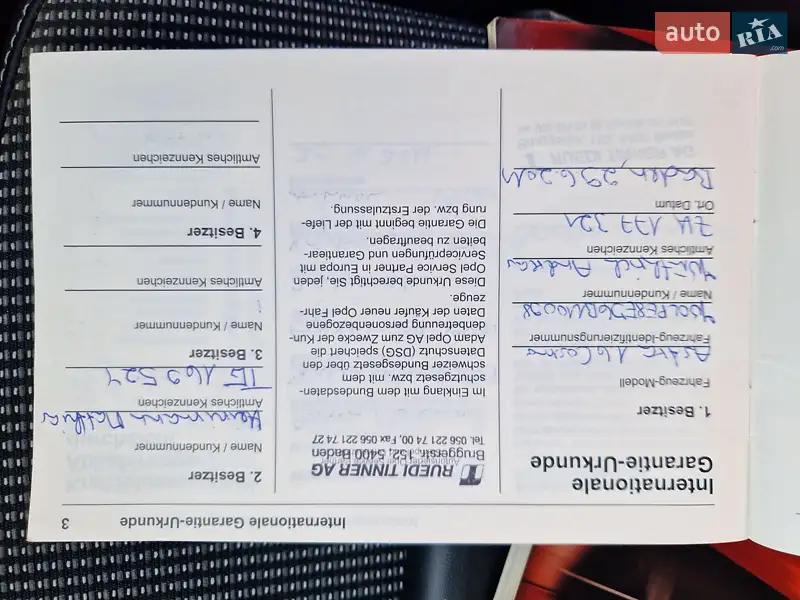 auto RIA.com
Internationale Garantie-Urkunde 3
Internationale
Garantie-Urkunde
1. Besitzer
Fahrzeug-Modell
Astra 1.6 Cosmo
Fahrzeug-Identifizierungsnummer
Name / Kundennummer
Andreas
Amtliches Kennzeichen
ZH 177 321
Ort, Datum
Baden, 29.6.2011
RUEDI TINNER AG
Bruggerstr. 152, 5400 Baden
Tel. 056 221 74 00, Fax 056 221 74 27
Im Einklang mit dem Bundesdaten-
schutzgesetz bzw. mit dem
schweizer Bundesgesetz über den
Datenschutz (DSG) speichert die
Adam Opel AG zum Zwecke der Kun-
denbetreuung personenbezogene
Daten der Käufer neuer Opel Fahr-
zeuge.
Diese Urkunde berechtigt Sie, jeden
Opel Service Partner in Europa mit
Serviceprüfungen und Garantiear-
beiten zu beauftragen.
Die Garantie beginnt mit der Liefe-
rung bzw. der Erstzulassung.
2. Besitzer
Name / Kundennummer
Heinimann Mathias
Amtliches Kennzeichen
TG 169 527
3. Besitzer
Name / Kundennummer
Amtliches Kennzeichen
4. Besitzer
Name / Kundennummer
Amtliches Kennzeichen